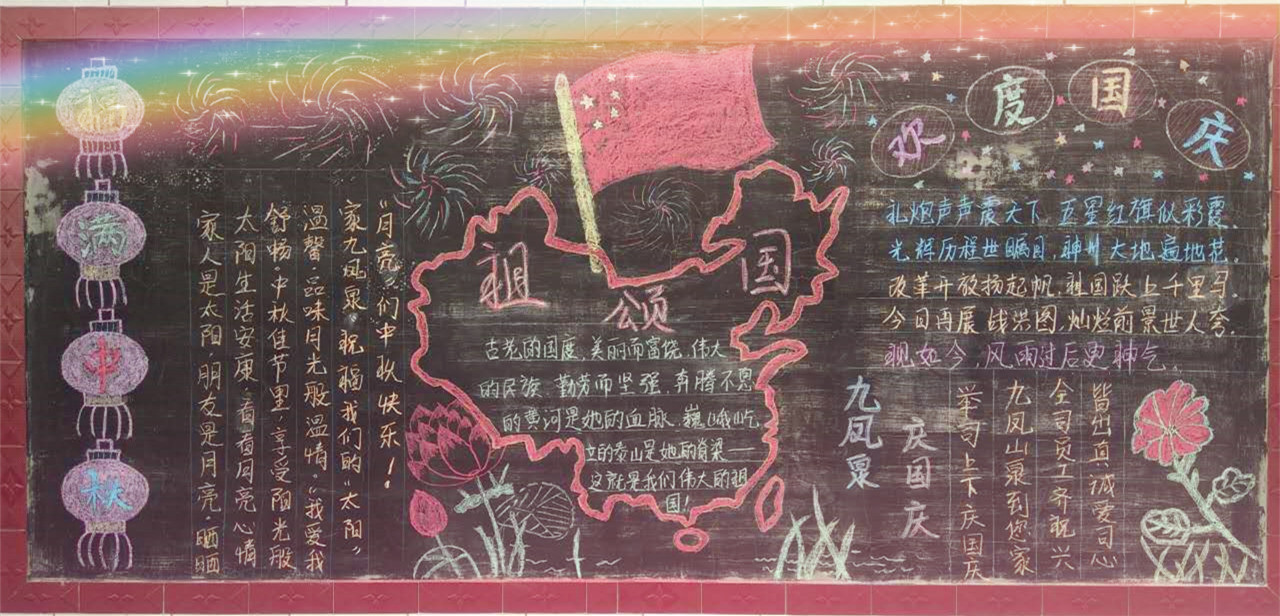 福满中秋
家人是太阳·朋友是月亮·晒晒
太阳生活安康·看看月亮心情
舒畅·中秋佳节里·享受阳光般
温馨·品味月光般温情。我爱我
家九凤泉·祝福我们的“太阳”
“月亮”们中秋快乐!
祖国颂
古老的国度,美丽而富饶,伟大
的民族,勤劳而坚强,奔腾不息
的黄河是她的血脉,巍峨屹
立的泰山是她的脊梁——
这就是我们伟大的祖
国!
欢度国庆
礼炮声声震天下 五星红旗似彩霞,
光辉历程世瞩目,神州大地遍地花,
改革开放扬起帆,祖国跃上千里马,
今日再展战洪图,灿烂前景世人夸,
观如今,风雨过后更神气。
九凤泉
庆国庆
举司上下庆国庆
九凤山泉到您家
全司员工齐祝兴
皆出真诚爱司心